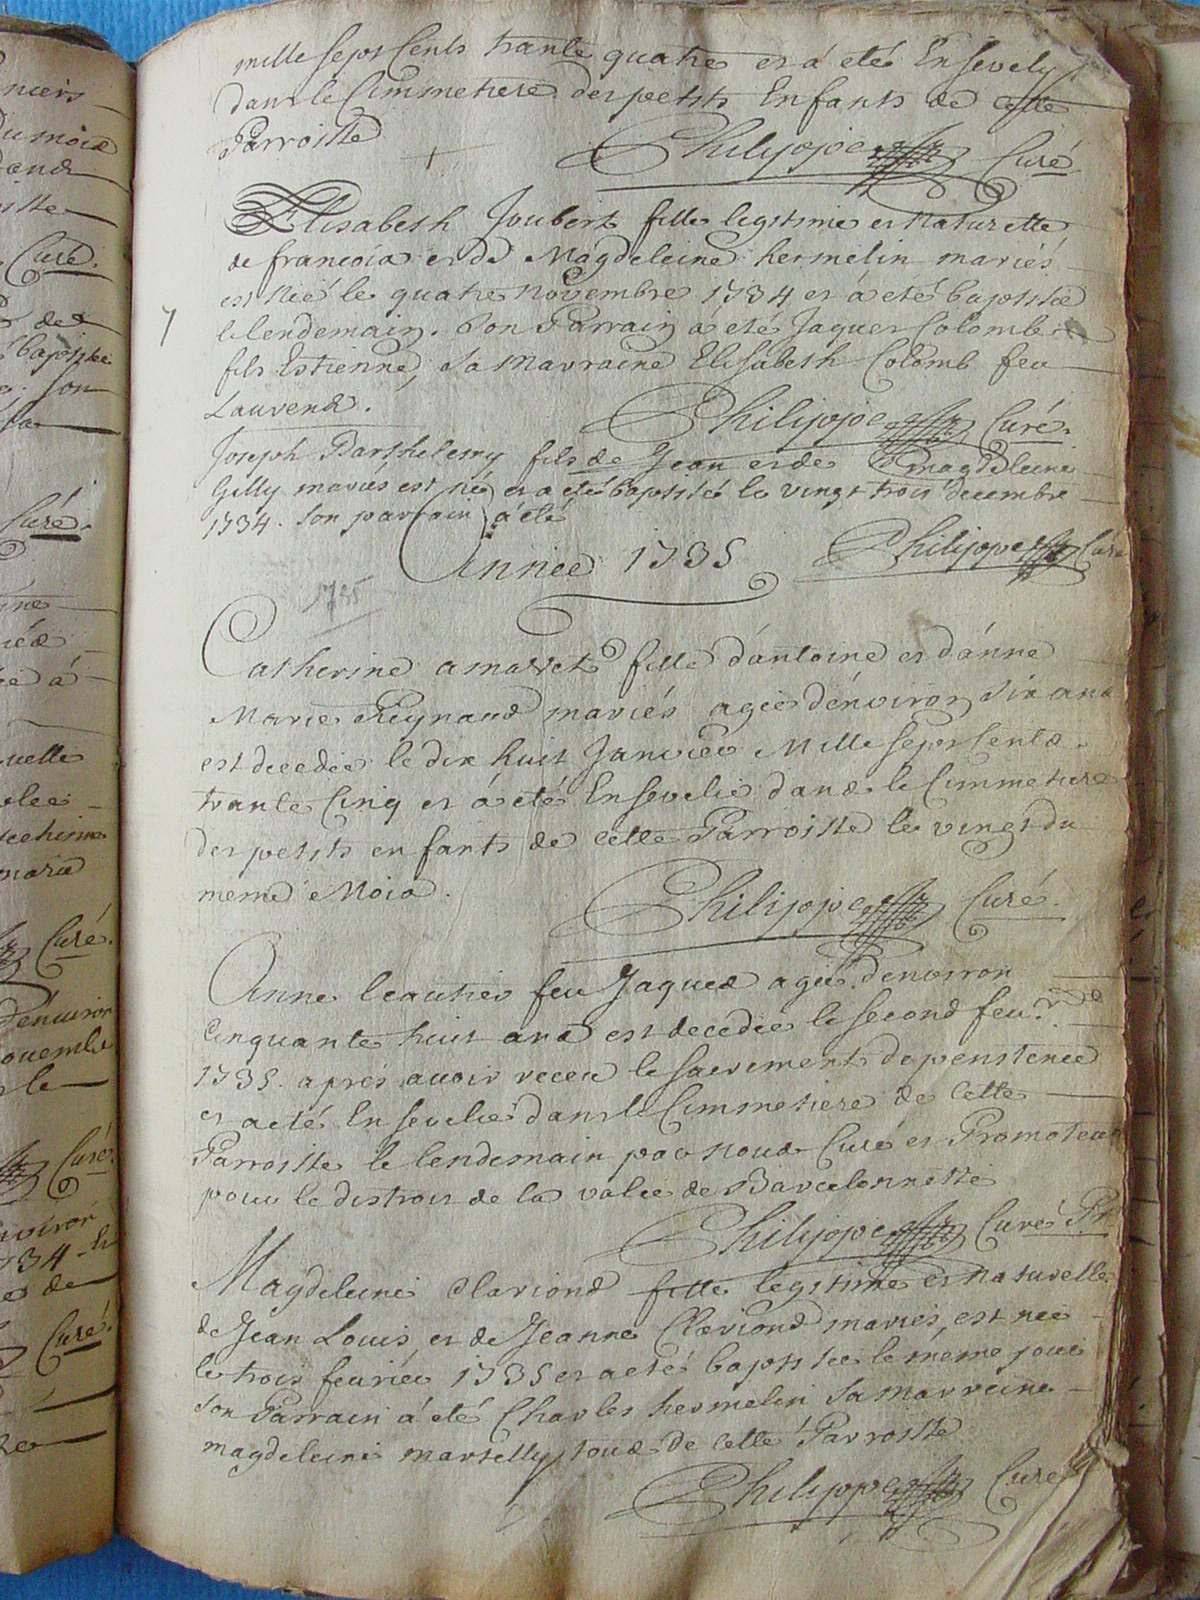 mille sept Cents trante quatre et á eté Ensevely
dans le Cimmetiere des petits Enfants de cette
Parroisse
Philippe Curé
Elisabeth Joubert fille legitime et naturelle
de francois et de Magdeleine hermelin mariés
est née le quatre Novembre 1734 et á eté baptisée
7
le lendemain. Son Parrain á eté Jaques Colomb
fils Estienne, sa marraine Elisabeth Colomb feu
Laurend.
Philippe Curé.
Joseph Barthelemy fils de Jean et de magdeleine
Gilly mariés est né et a eté baptisé le vingt trois decembre
1734. son parrain á eté
Philippe Curé
Année 1735
1735
Catherine amavet fille d'antoine et d'anne
Marie Reynaud mariés agée d'environ six ans
est decedée le dix huit Janvier Mille sept Cents
trante Cinq et á eté Ensevelie dans le Cimmetiere
des petits enfants de cette Parroisse le vingt du
meme Mois.
Philippe Curé.
Anne leautier feu Jaques agée d'environ
Cinquante huit ans est decedée le second feu.r
1735. aprés avoir receu le sacrement de penitence
et a eté Ensevelie dans le Cimmetiere de cette
Parroisse le lendemain par nous Curé et Promoteur
pour le distroit de la valée de Barcelonnette
Philippe Curé Pr
Magdeleine Clariond fille legitime et naturelle
de Jean Louis et de Jeanne Clariond mariés, est née
le trois feurier 1735 et a eté baptisée le meme jour
son Parrain á eté Charles hermelin sa marreine
magdeleine martelly tous de cette Parroisse
Philippe Curé